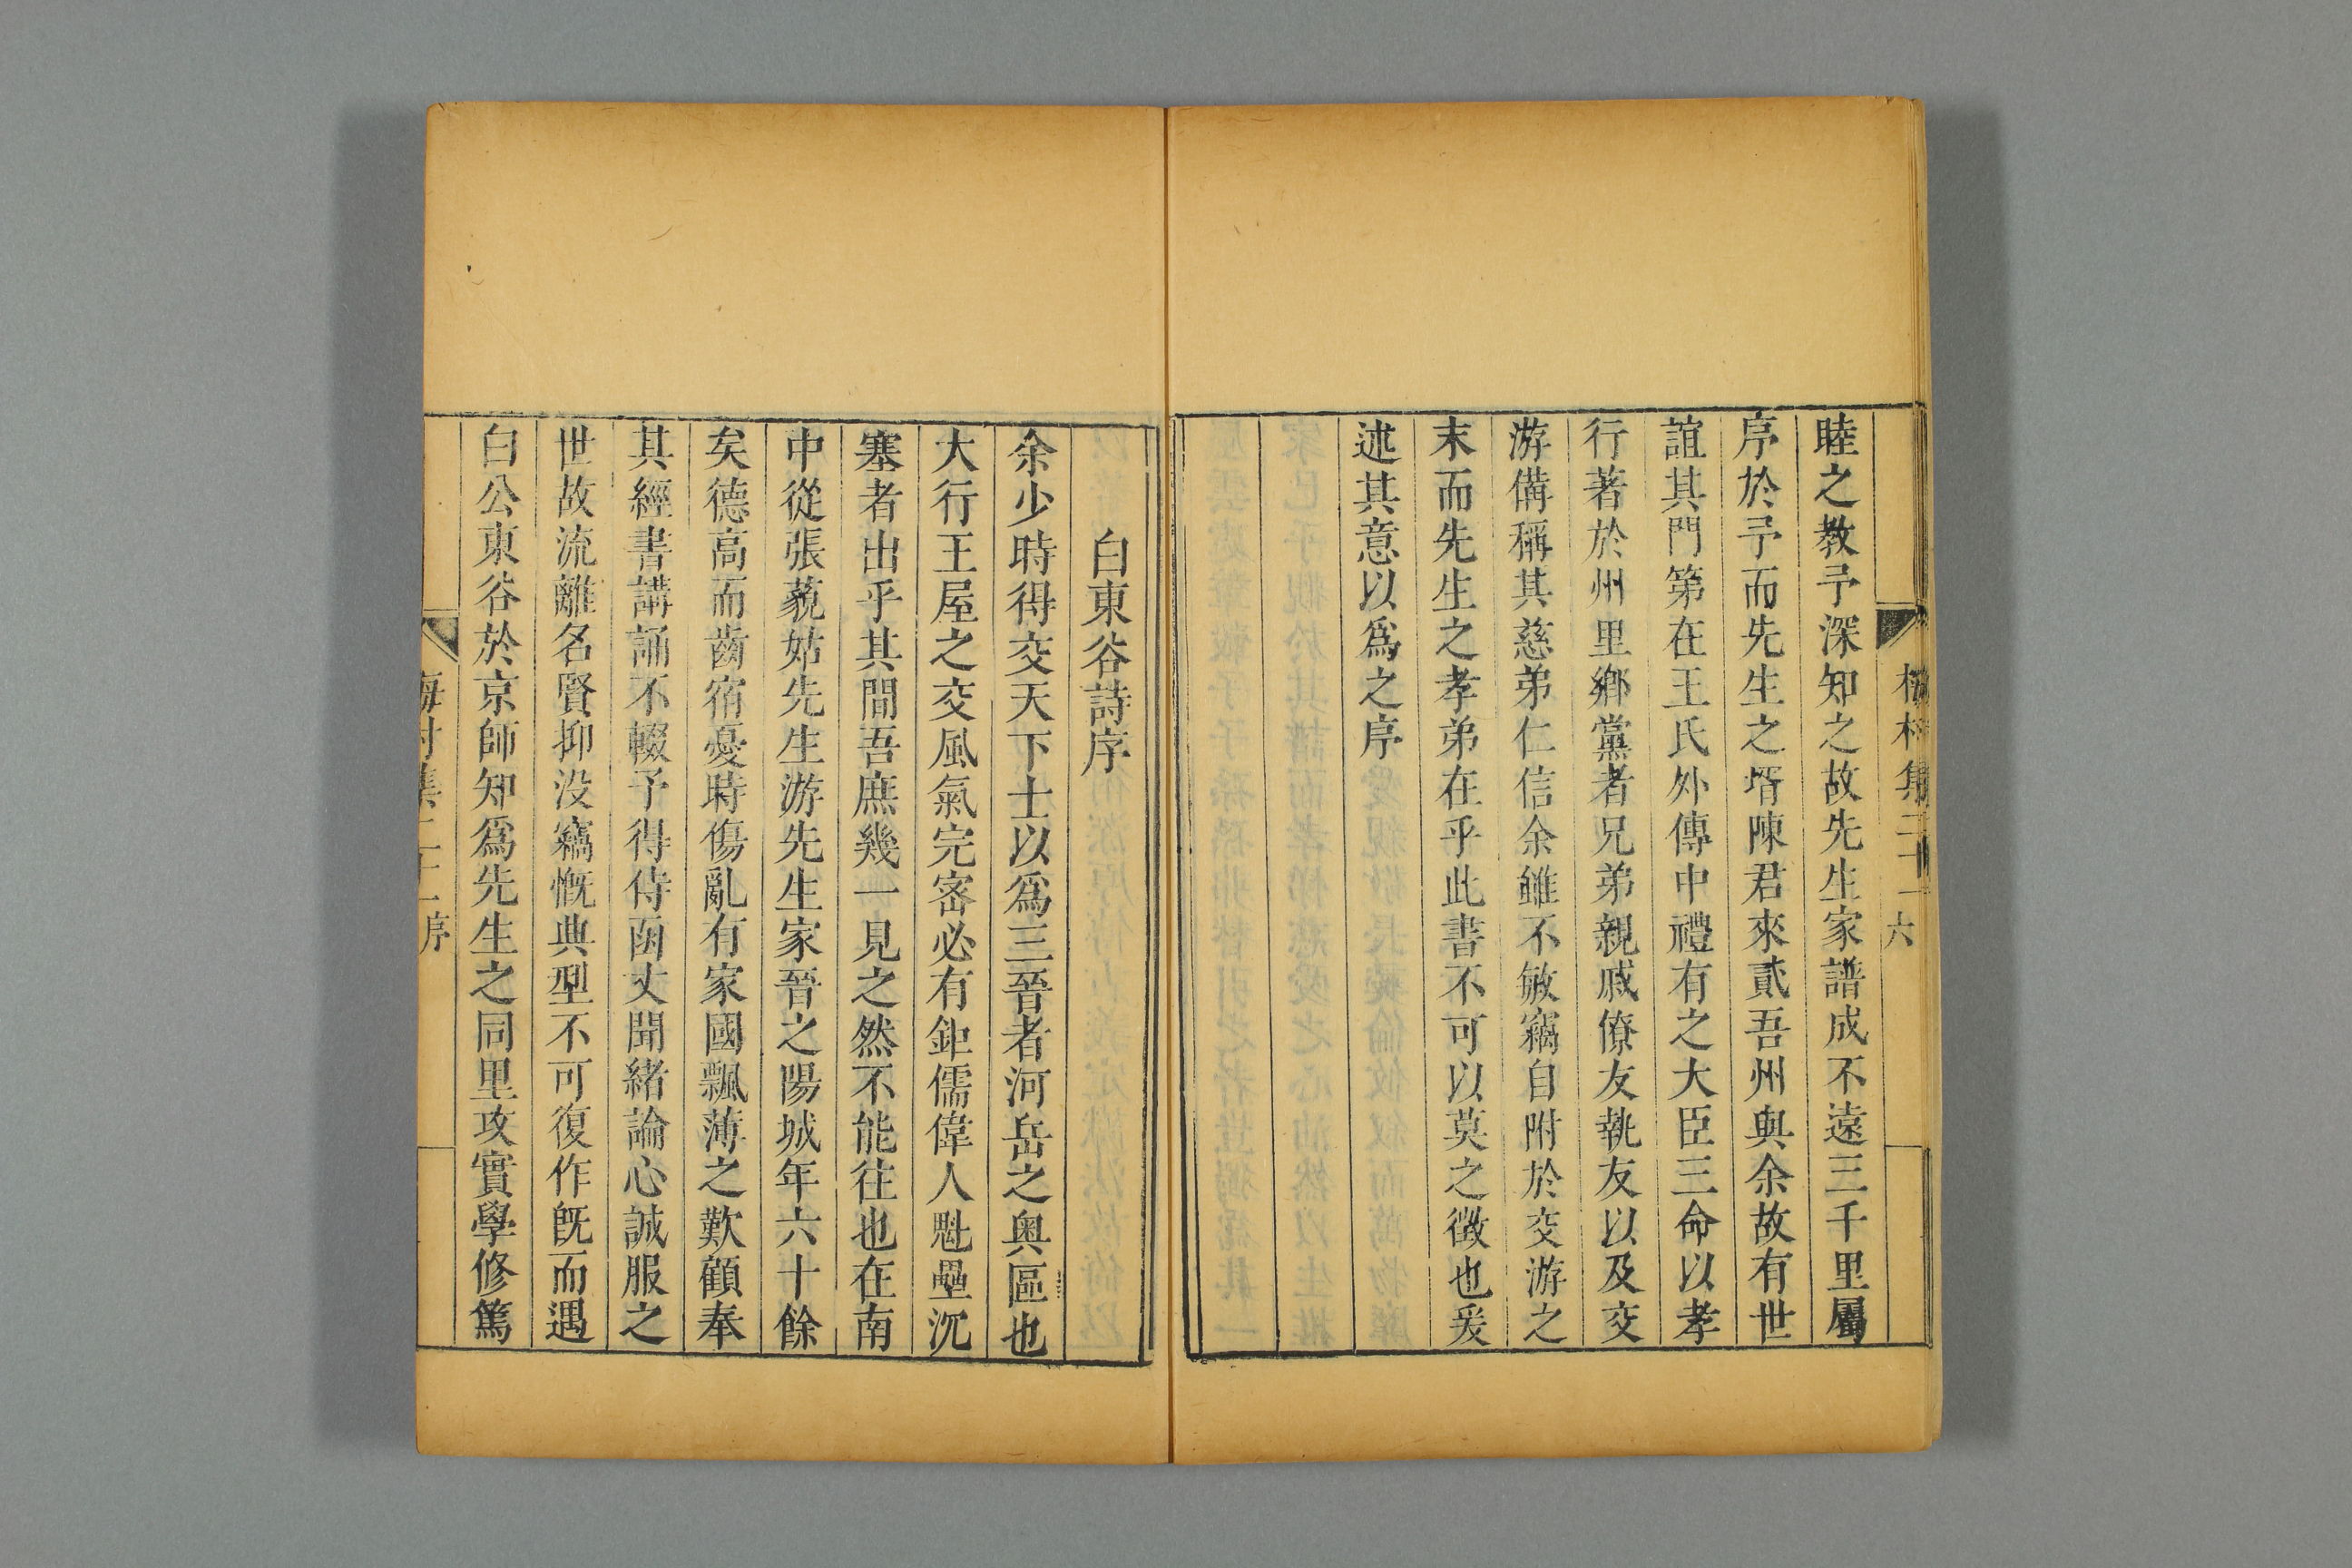 睦之教予深知之故先生家譜成不遠三千里屬
序於予而先生之壻陳君來貳吾州與余故有世
誼其門第在王氏外傳中禮有之大臣三命以孝
行著於州里鄉黨者兄弟親戚僚友執友以及交
游備稱其慈弟仁信余雖不敏竊自附於交游之
末而先生之孝弟在乎此書不可以莫之徵也爰
述其意以爲之序
白東谷詩序
余少時得交天下士以爲三晉者河岳之奥區也
大行王屋之交風氣完宻必有鉅儒偉人魁壘沉
塞者出乎其間吾庶幾一見之然不能往也在南
中從張藐姑先生游先生家晉之陽城年六十餘
矣德高而齒宿憂時傷亂有家國飄薄之歎顧奉
其經書講誦不輟予得侍函丈聞緒論心誠服之
世故流離名賢抑没竊慨典型不可復作旣而遇
白公東谷於京師知爲先生之同里攻實學修篤
梅村集二十一 序